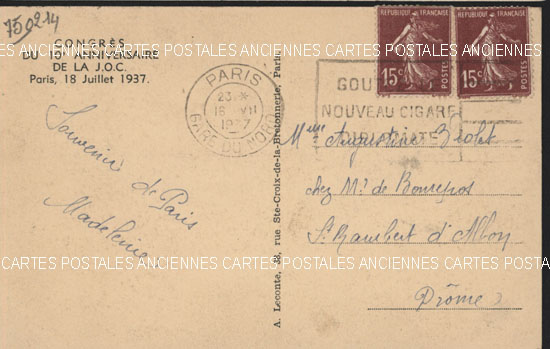 750214
CONGRÈS
DU 10e ANNIVERSAIRE
DE LA J.O.C.
Paris, 18 Juillet 1937.
Souvenir
de Paris
Madeleine
PARIS
23 *
18 VII
1937
GARE DU NORD
A. Leconte, 38, rue Ste-Croix-de-la-Bretonnerie, Paris
REPUBLIQUE FRANÇAISE
15c
POSTES
REPUBLIQUE FRANÇAISE
15c
POSTES
GOU
NOUVEAU CIGARE
DIPLOMATE
Mme Augustine
chez Mr de Bonrepos
St Rambert d'Albon
Drôme
CARTES POSTALES ANCIENNES CARTES POSTALES ANCIENNES CARTES POSTALES ANCIENNES
CARTES POSTALES ANCIENNES CARTES POSTALES ANCIENNES CARTES POSTALES ANCIENNES